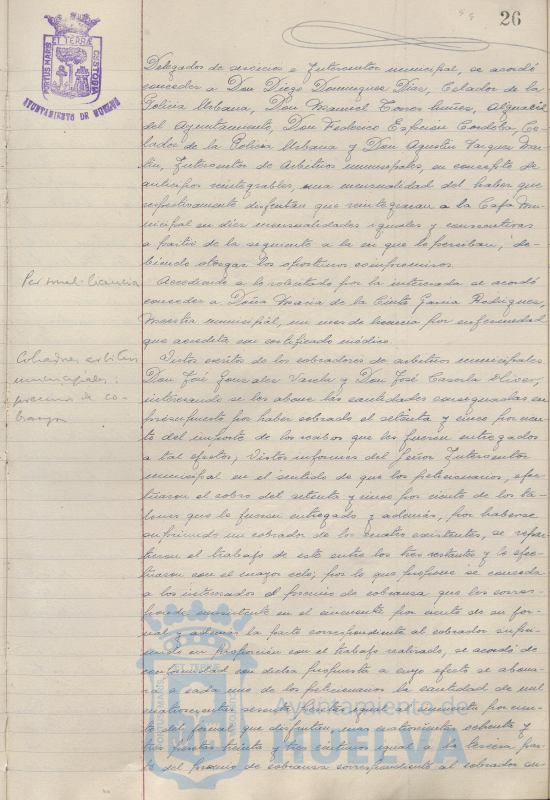 26
PORTUS MARIS ET TERRÆ CUSTODIA
AYUNTAMIENTO DE HUELVA
Delegados de servicios e Interventor municipal, se acordó
conceder a Don Diego Dominguez Diaz, Celador de la
Policia Urbana, Don Manuel Torres Nuñez, Alguacil
del Ayuntamiento, Don Federico Espósito Cordoba, Ce-
lador de la Policia Urbana y Don Agustin Vazquez
Interventor de Arbitrios municipales, en concepto de
anticipos reintegrables, una mensualidad del haber que
respectivamente disfrutan que reintegrarán a la Caja Mu-
nicipal en diez mensualidades iguales y consecutivas
a partir de la siguiente a la en que lo perciban, de-
biendo otorgar los oportunos compromisos.
Personal: licencia
Accediendo a lo solicitado por la interesada se acordó
conceder a Doña Maria de la Cinta Garcia Rodriguez,
Maestra municipal, un mes de licencia por enfermedad
que acredita con certificado médico.
Cobradores arbitrios
municipales:
premio de co-
branza
Vistos escritos de los cobradores de arbitrios municipales
Don José Gonzalez Varela y Don José Casorla Oliver,
interesando se les abone las cantidades consignadas en
presupuesto por haber cobrado el setenta y cinco por cien-
to del importe de los recibos que les fueron entregados
a tal efecto; Vistos informes del Señor Interventor
municipal en el sentido de que los peticionarios, efec-
tuaron el cobro del setenta y cinco por ciento de los ta-
lones que le fueron entregado y además, por haberse
suprimido un cobrador de los cuatro existentes, se repar-
tieron el trabajo de este entre los tres restantes y lo efec-
tuaron con el mayor celo; por lo que propone se conceda
a los interesados el premio de cobranza que les corres-
ponde consistente en el cincuenta por ciento de su jor-
nal y además la parte correspondiente al cobrador supri-
mido en proporción con el trabajo realizado, se acordó de
conformidad con dicha propuesta a cuyo efecto se abona-
rá a cada uno de los peticionarios la cantidad de mil
cuatrocientas sesenta pesetas igual al cincuenta por cien-
to del jornal que disfrutan, mas cuatrocientas ochenta y
tres pesetas treinta y tres centimos igual a la tercera par-
te del premio de cobranza correspondiente al cobrador cu-
Ayuntamiento de
HUELVA